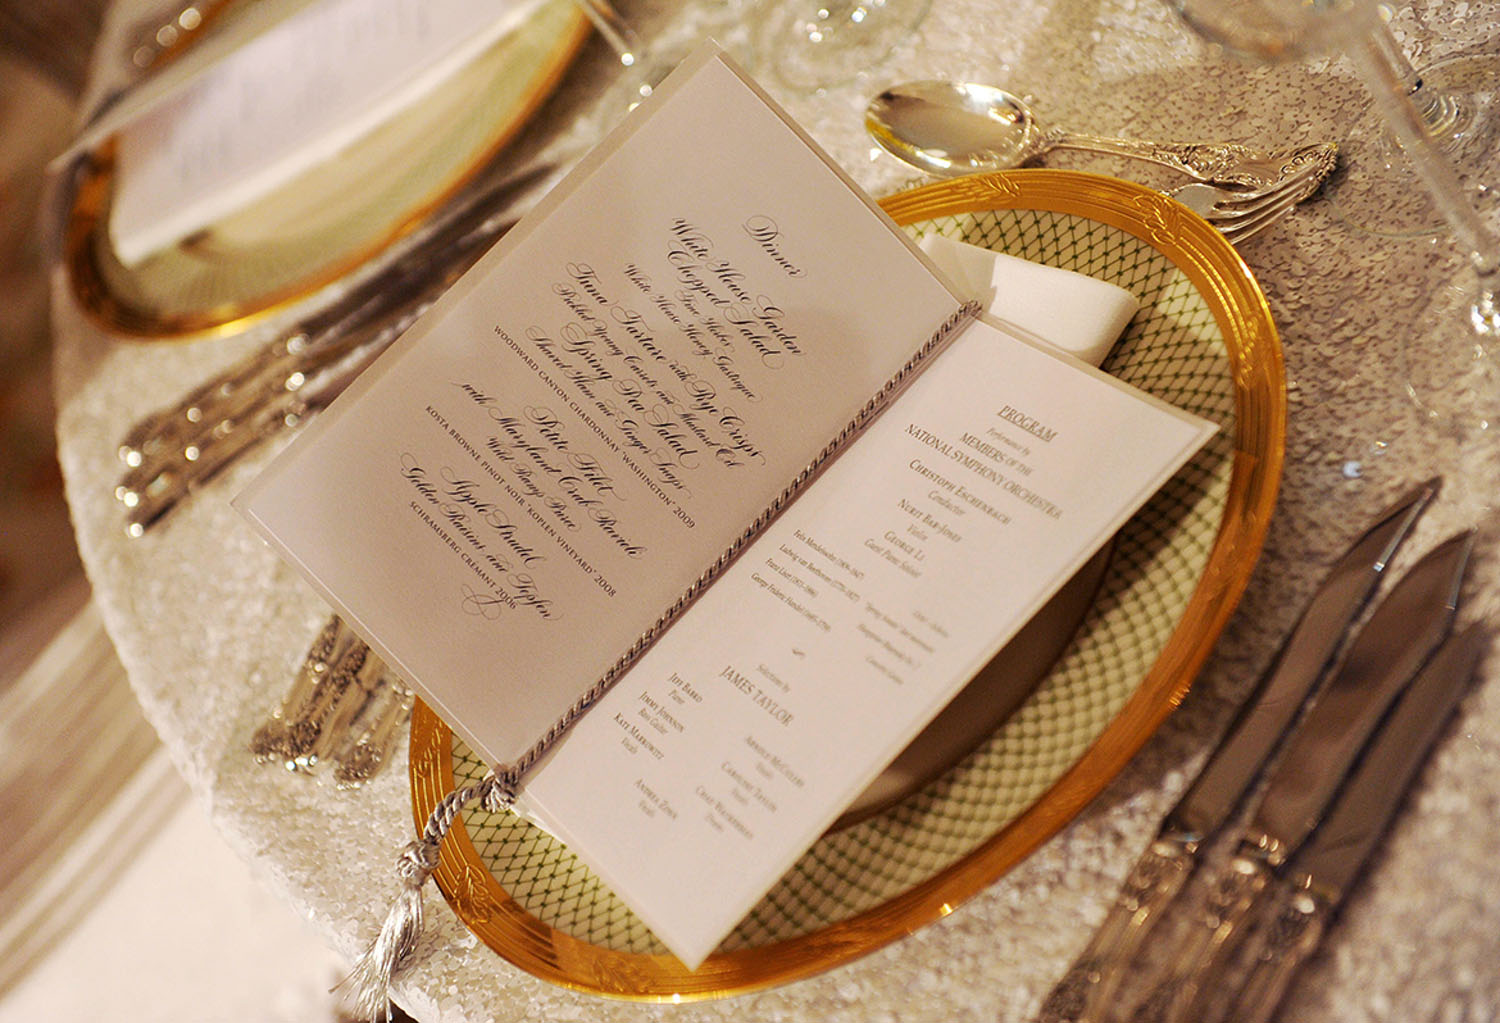 Dinner
White House Garden
Chopped Salad
Fine Herbes
White House Honey Gastrique
Tuna Tartare with Rye Crisps
Pickled Young Carrots and Mustard Oil
Spring Pea Salad
Shaved Ham and Ginger Snaps
WOODWARD CANYON CHARDONNAY "WASHINGTON" 2009
Petite Filet
with Maryland Crab Ravioli
Wild Ramp Puree
KOSTA BROWNE PINOT NOIR "KOPLEN VINEYARD" 2008
Apple Strudel
Golden Raisins and Topfen
SCHRAMSBERG CREMANT 2006
PROGRAM
Performance by
MEMBERS OF THE
NATIONAL SYMPHONY ORCHESTRA
CHRISTOPH ESCHENBACH
Conductor
NURIT BAR-JOSEF
Violin
GEORGE LI
Guest Piano Soloist
Felix Mendelssohn (1809-1847)
Ludwig van Beethoven (1770-1827)
Franz Liszt (1811-1886) Hungarian Rhapsody No. 2
George Frideric Handel (1685-1759)
Selections by
JAMES TAYLOR
JEFF BABKO
Piano
JIMMY JOHNSON
Bass Guitar
KATE MARKOWITZ
Vocals
ANDREA ZONN
Vocals
ARNOLD MCCULLER
Vocals
CAROLINE TAYLOR
Vocals
Vocals